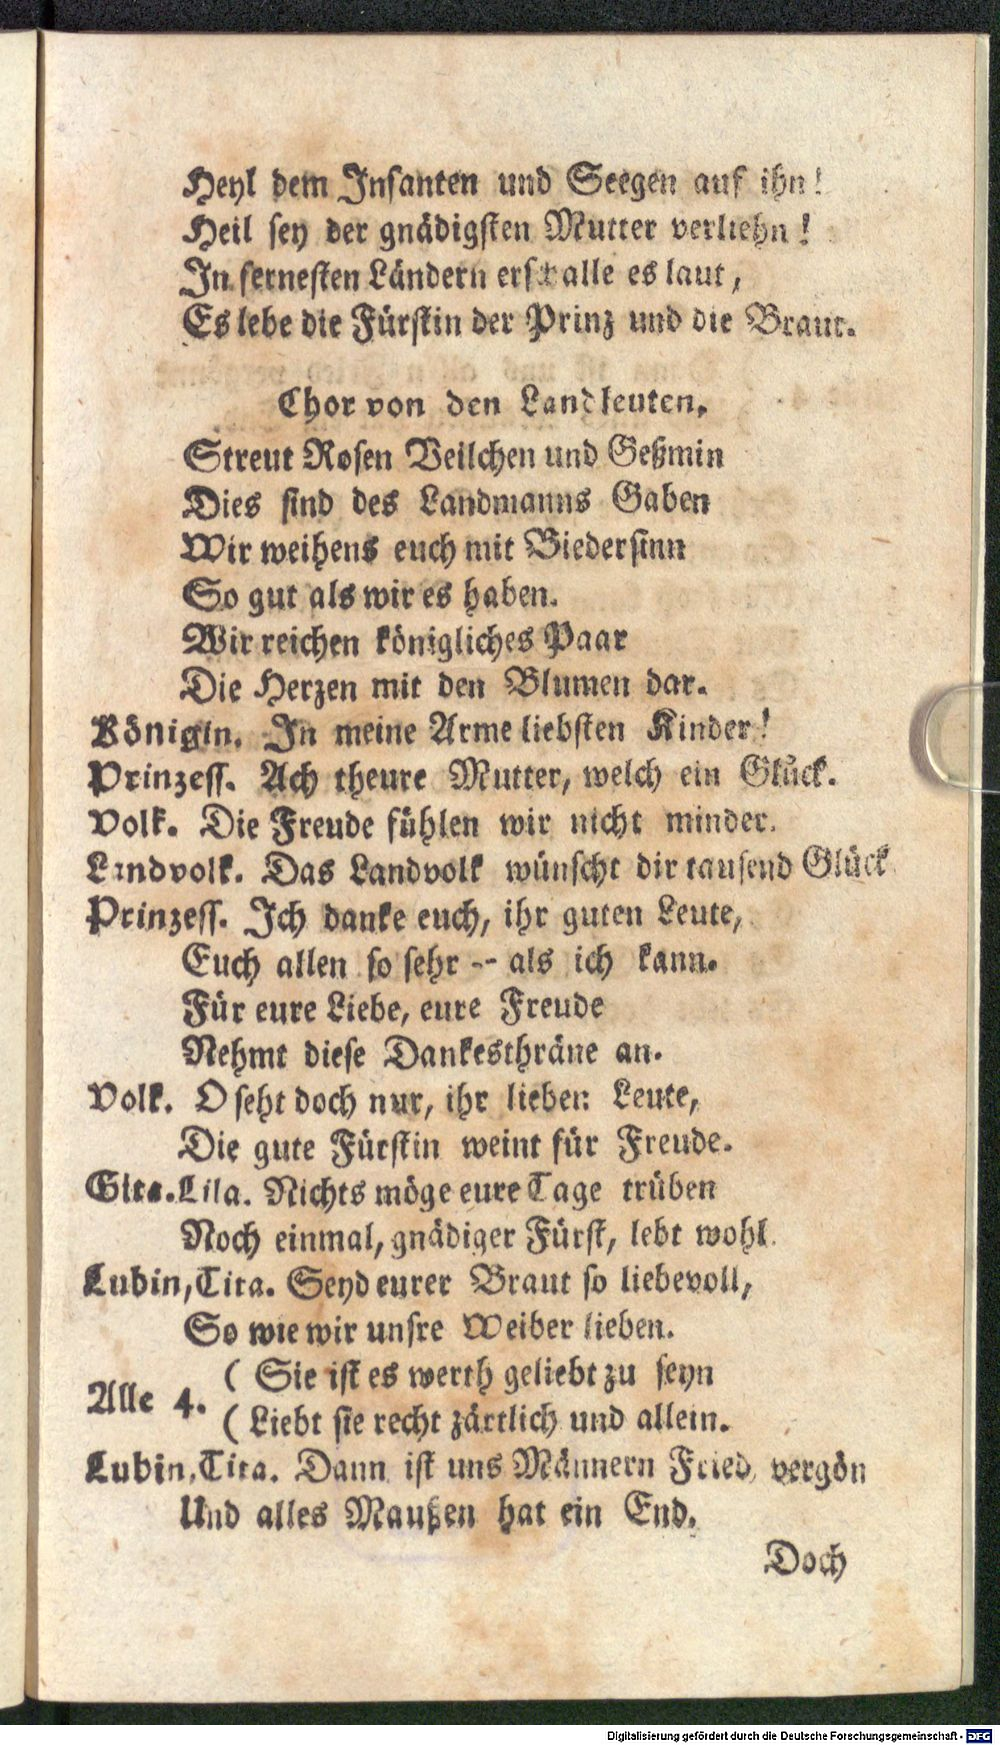 Heyl dem Infanten und Seegen auf ihn!
Heil sey der gnädigsten Mutter verliehn!
In fernesten Ländern erschalle es laut,
Es lebe die Fürstin der Prinz und die Braut.
Chor von den Landleuten.
Streut Rosen Veilchen und Geßmin
Dies sind des Landmanns Gaben
Wir weihens euch mit Biedersinn
So gut als wir es haben.
Wir reichen königliches Paar
Die Herzen mit den Blumen dar.
Königin. In meine Arme liebsten Kinder!
Prinzess. Ach theure Mutter, welch ein Glück.
Volk. Die Freude fühlen wir nicht minder.
Landvolk. Das Landvolk wünscht dir tausend Glück
Prinzess. Ich danke euch, ihr guten Leute,
Euch allen so sehr -- als ich kann.
Für eure Liebe, eure Freude
Nehmt diese Dankesthräne an.
Volk. O seht doch nur, ihr lieben Leute,
Die gute Fürstin weint für Freude.
Gita. Lila. Nichts möge eure Tage trüben
Noch einmal, gnädiger Fürst, lebt wohl.
Lubin, Tita. Seyd eurer Braut so liebevoll,
So wie wir unsre Weiber lieben.
( Sie ist es werth geliebt zu seyn
Alle 4.
( Liebt sie recht zärtlich und allein.
Lubin, Tita. Dann ist uns Männern Fried vergön
Und alles Maußen hat ein End.
Doch
Digitalisierung gefördert durch die Deutsche Forschungsgemeinschaft - DFG